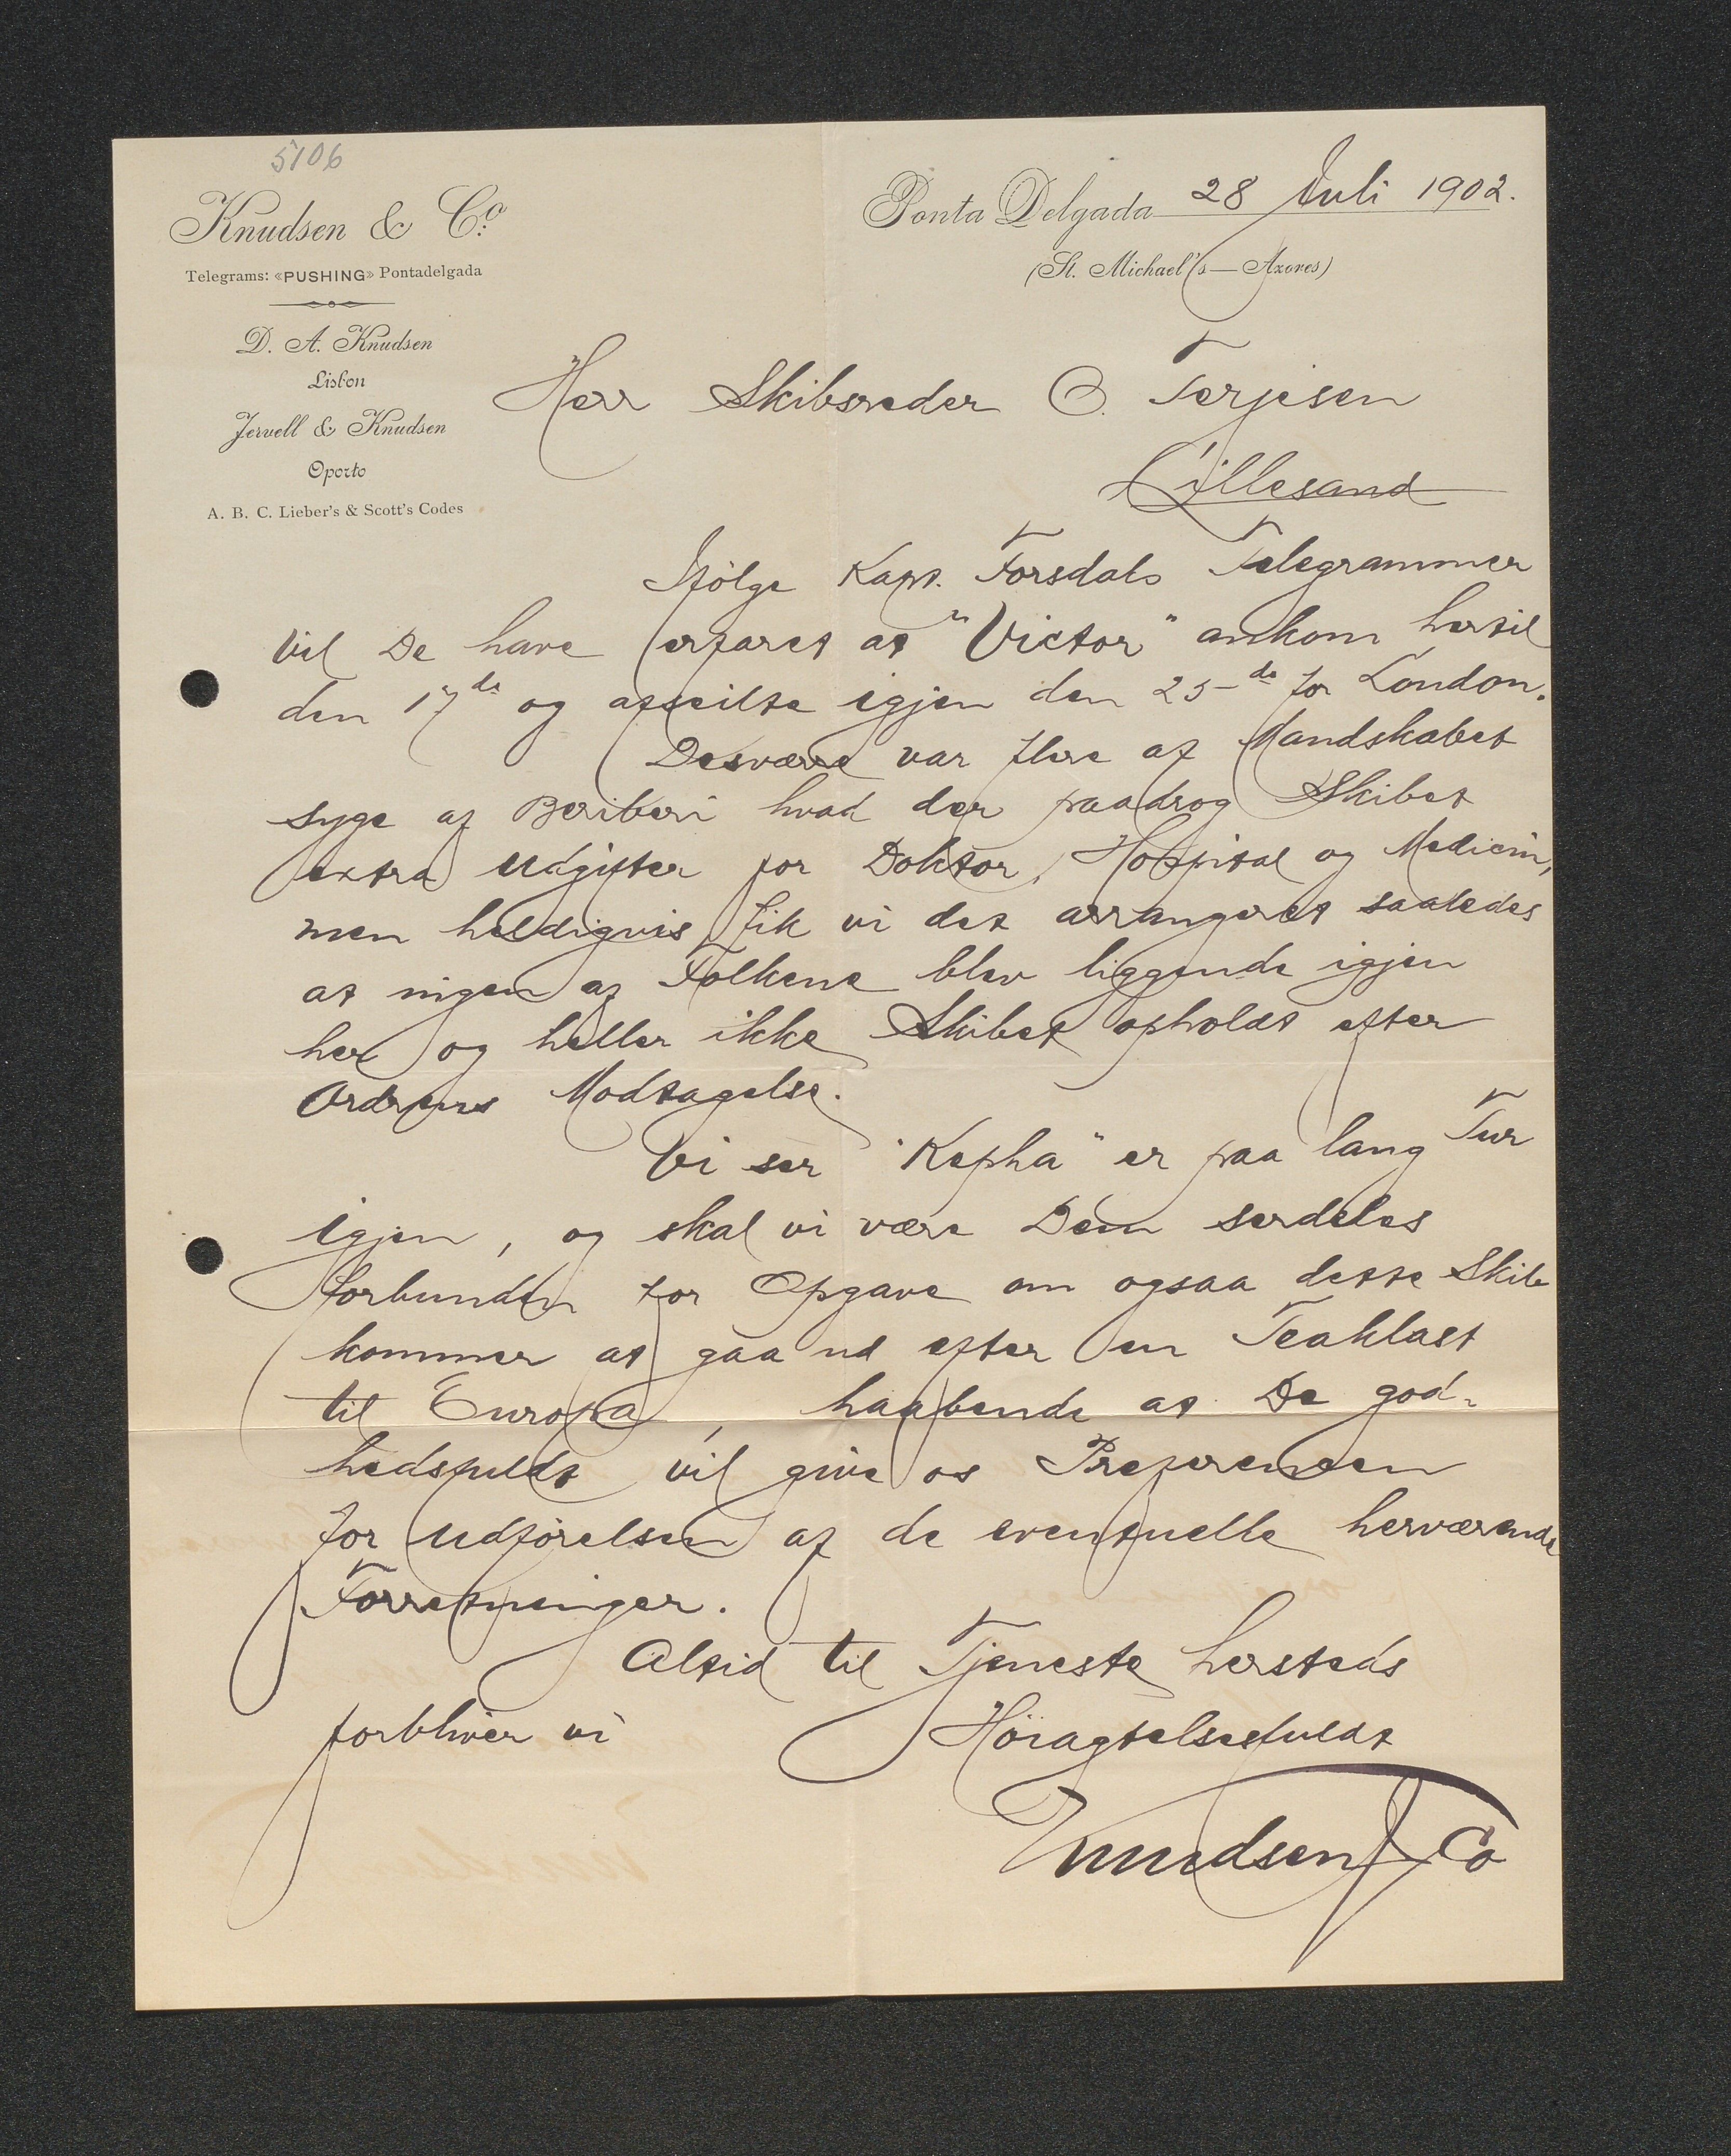 5106
Knudsen & Co.
Telegrams: «PUSHING» Pontadelgada
D. A. Knudsen
Lisbon
Jervell & Knudsen
Oporto
A. B. C. Lieber's & Scott's Codes
Ponta Delgada 28 Juli 1902.
(St. Michael's—Azores)
Herr Skibsreder O. Terjesen
Lillesand
Ifölge Kapt. Forsdals Telegrammer
vil De have erfaret at "Victor" ankom hertil
den 17de og afseilte igjen den 25de for London.
Desværre var flere af Mandskabet
syge af Beriberi hvad der paadrog Skibet
extra Udgifter for Doktor, Hospital og Medicin,
men heldigvis fik vi det arrangeret saaledes
at ingen af Folkene blev liggende igjen
her og heller ikke Skibet opholdt efter
Ordrens Modtagelse.
Vi ser "Kepha" er paa lang Tur
igjen, og skal vi være Dem serdeles
forbunden for Opgave om ogsaa dette Skib
kommer at gaa ud efter en Teaklast
til Europa, haabende at De god-
hedsfuldt vil give os Preferencen
for Udförelsen af de eventuelle herværende
Forretninger.
Altid til Tjeneste hersteds
forbliver vi Höiagtelsesfuldt
Knudsen & Co